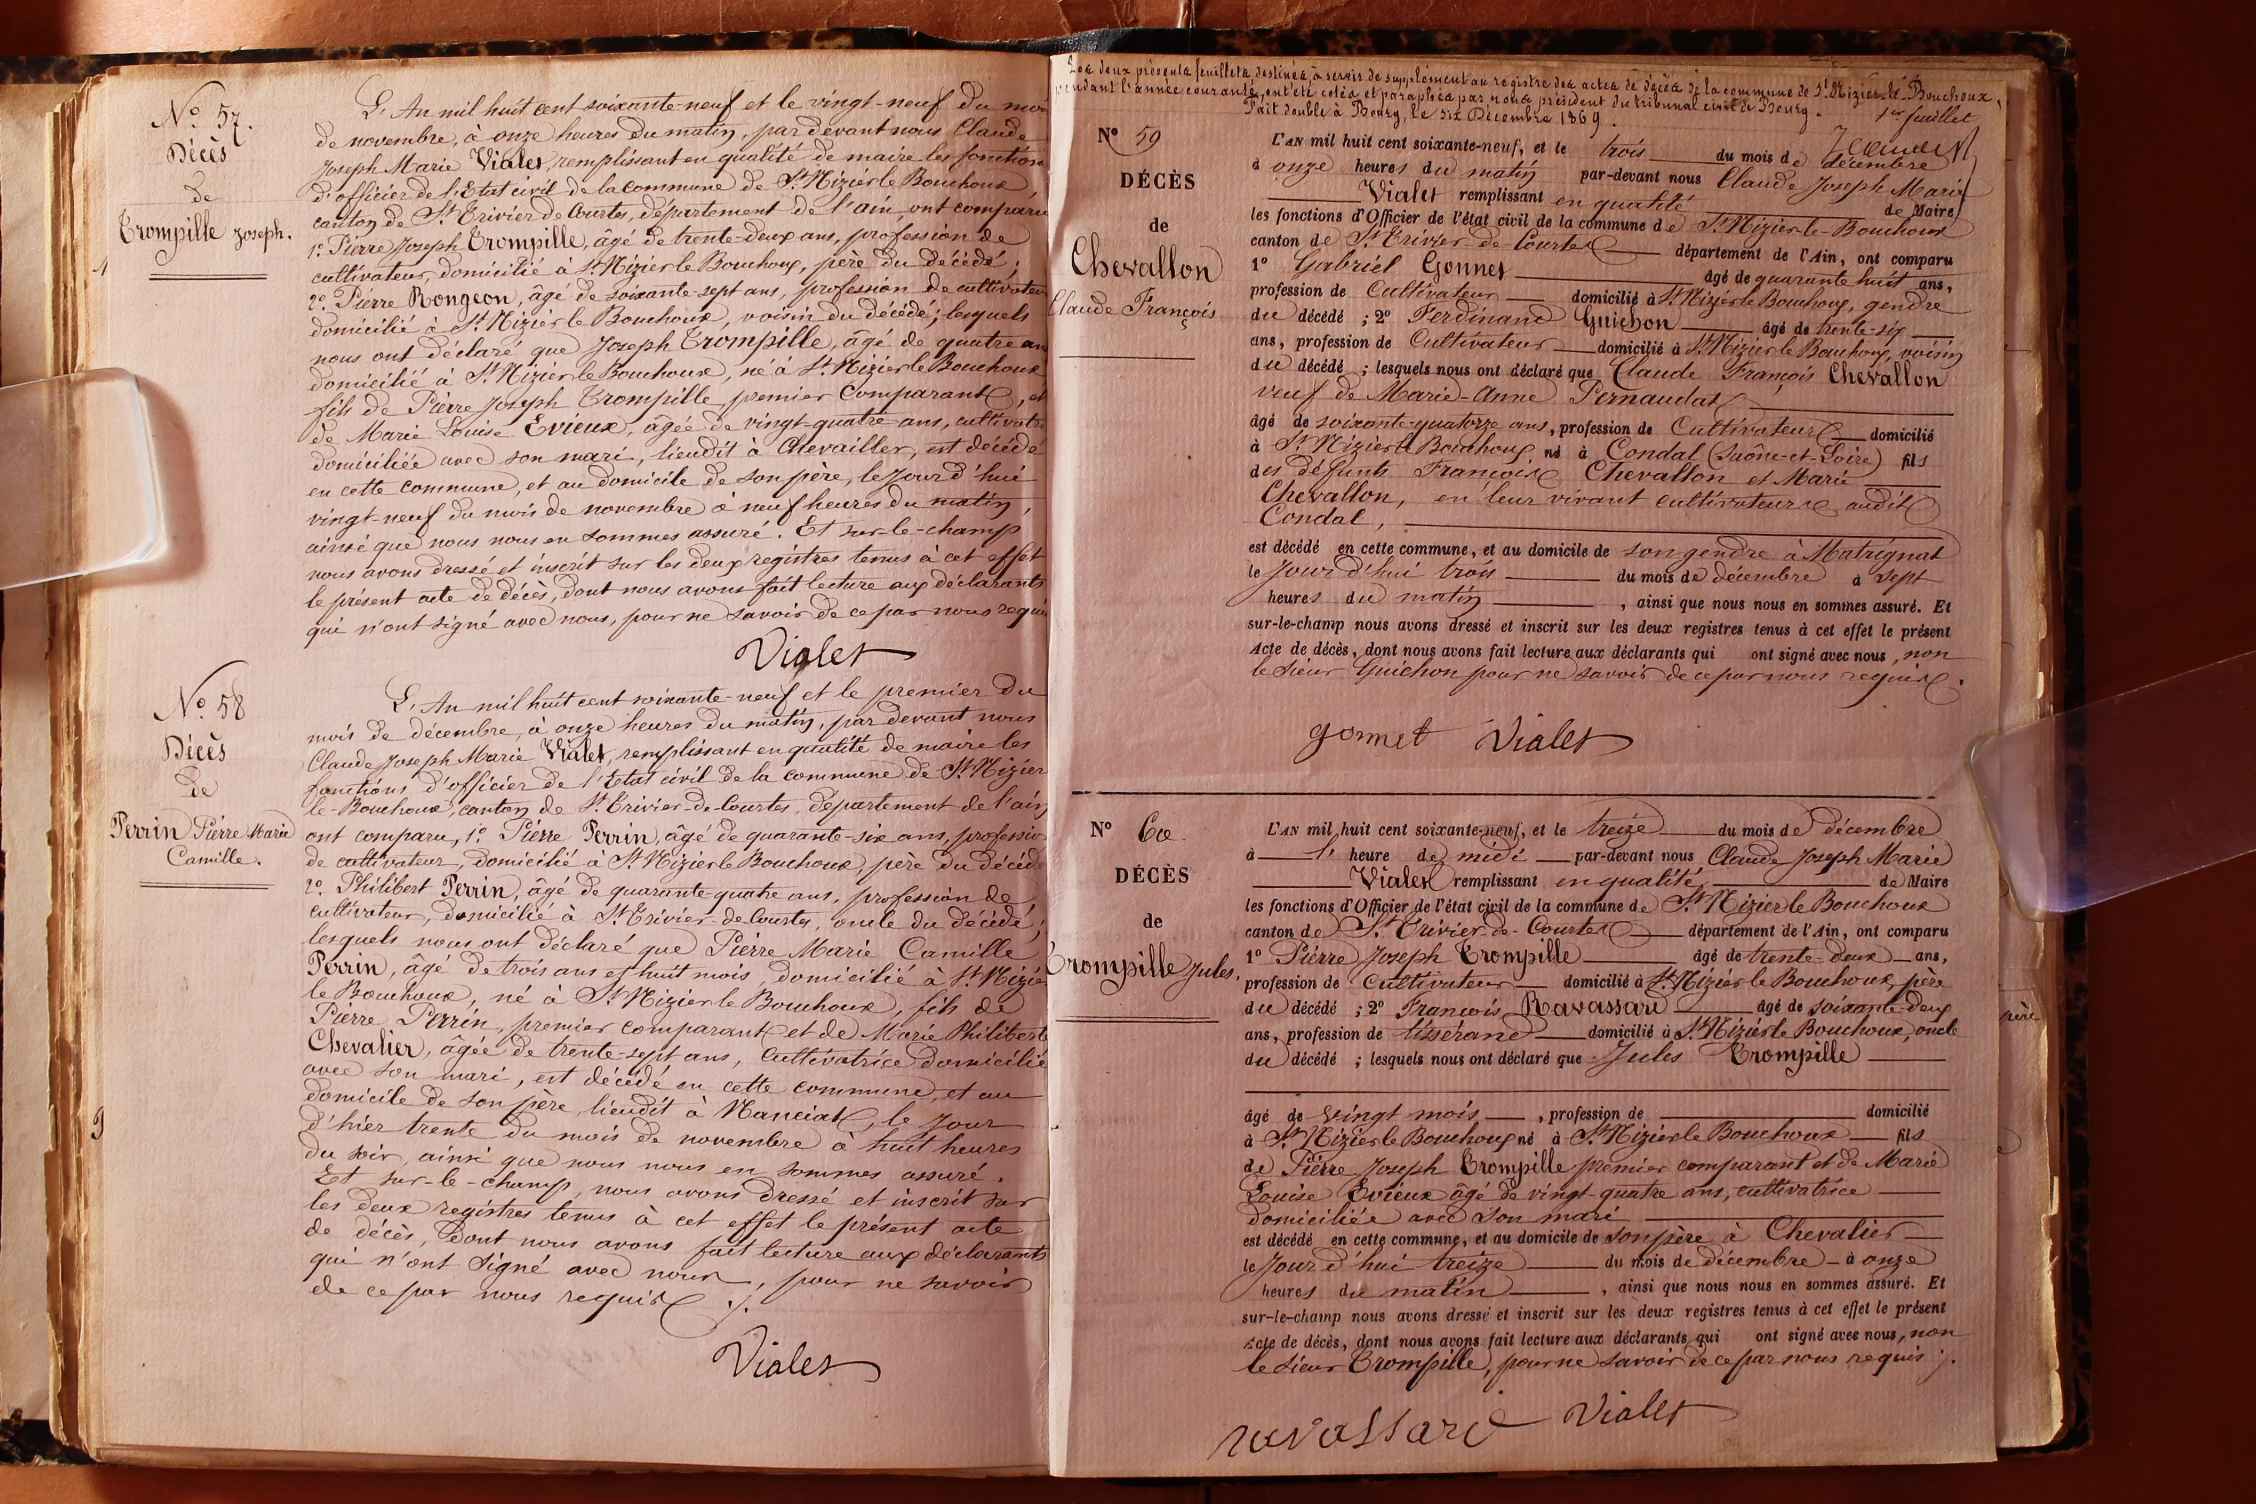 No. 57.
Décès
de
Trompille Joseph.
L'An mil huit cent soixante-neuf et le vingt-neuf du mois
de novembre, à onze heures du matin, par devant nous Claude
Joseph Marie Vialet, remplissant en qualité de maire les fonctions
d'officier de l'Etat civil de la commune de St Nizier le Bouchoux
canton de St Trivier de Courtes, département de l'ain, ont comparu
1º Pierre Joseph Trompille, âgé de trente-deux ans, profession de
cultivateur, domicilié à St Nizier le Bouchoux, père du décédé;
2º Pierre Rongeon, âgé de soixante-sept ans, profession de cultivateur
domicilié à St Nizier le Bouchoux, voisin du décédé; lesquels
nous ont déclaré que Joseph Trompille, âgé de quatre ans
domicilié à St Nizier le Bouchoux, né à St Nizier le Bouchoux
fils de Pierre Joseph Trompille premier Comparant, et
de Marie Louise Evieux, âgée de vingt-quatre ans, cultivatrice
domiciliée avec son mari, lieudit à Chevailler, est décédé
en cette commune, et au domicile de son père, le jour d'hui
vingt-neuf du mois de novembre à neuf heures du matin,
ainsi que nous nous en sommes assuré. Et sur-le-champ
nous avons dressé et inscrit sur les deux registres tenus à cet effet
le présent acte de décès, dont nous avons fait lecture aux déclarants
qui n'ont signé avec nous, pour ne savoir de ce par nous requis
Vialet
No. 58
Décès
de
Perrin Pierre Marie
Camille.
L'An mil huit cent soixante-neuf et le premier du
mois de décembre, à onze heures du matin, par devant nous
Claude Joseph Marie Vialet, remplissant en qualité de maire les
fonctions d'officier de l'Etat civil de la commune de St Nizier
le-Bouchoux, canton de St Trivier-de-Courtes, département de l'ain,
ont comparu, 1º Pierre Perrin, âgé de quarante-six ans, profession
de cultivateur, domicilié à St Nizier le Bouchoux, père du décédé
2º Philibert Perrin, âgé de quarante-quatre ans, profession de
cultivateur, domicilié à St Trivier-de-Courtes, oncle du décédé;
lesquels nous ont déclaré que Pierre Marie Camille
Perrin, âgé de trois ans et huit mois, domicilié à St Nizier
le Bouchoux, né à St Nizier le Bouchoux, fils de
Pierre Perrin, premier comparant et de Marie Philiberte
Chevalier, âgée de trente-sept ans, Cultivatrice domiciliée
avec son mari, est décédé en cette commune, et au
domicile de son père, lieudit à Manciat, le jour
d'hier trente du mois de novembre à huit heures
du soir, ainsi que nous nous en sommes assuré.
Et sur-le-champ, nous avons dressé et inscrit sur
les deux registres tenus à cet effet le présent acte
de décès, dont nous avons fait lecture aux déclarants
qui n'ont signé avec nous, pour ne savoir
de ce par nous requis ./.
Vialet
Les deux présents feuillets destinés à servir de supplément au registre des actes de décès de la commune de St Nizier-le-Bouchoux,
pendant l'année courante, ont été cotés et paraphés par nous président du tribunal civil de Bourg.
Fait double à Bourg, le dix Décembre 1869.
1er feuillet
Nº 59
DÉCÈS
de
Chevallon
Claude François
L'AN mil huit cent soixante-neuf, et le trois du mois de décembre
à onze heures du matin par-devant nous Claude Joseph Marie
Vialet remplissant en qualité de Maire
les fonctions d'Officier de l'état civil de la commune de St Nizier-le-Bouchoux
canton de St Trivier-de-Courtes département de l'Ain, ont comparu
1º Gabriel Gonnet âgé de quarante huit ans,
profession de Cultivateur domicilié à St Nizier le Bouchoux, gendre
du décédé ; 2º Ferdinand Guichon âgé de trente-six
ans, profession de Cultivateur domicilié à St Nizier le Bouchoux, voisin
du décédé ; lesquels nous ont déclaré que Claude François Chevallon
veuf de Marie-Anne Pernaudat
âgé de soixante-quatorze ans, profession de Cultivateur domicilié
à St Nizier le Bouchoux né à Condal (Saône-et-Loire) fils
des défunts François Chevallon et Marie
Chevallon, en leur vivant cultivateurs audit
Condal,
est décédé en cette commune, et au domicile de son gendre à Matrignat
le Jour d'hui trois du mois de décembre à sept
heures du matin , ainsi que nous nous en sommes assuré. Et
sur-le-champ nous avons dressé et inscrit sur les deux registres tenus à cet effet le présent
Acte de décès, dont nous avons fait lecture aux déclarants qui ont signé avec nous, non
le Sieur Guichon pour ne savoir de ce par nous requis.
gonnet Vialet
Nº 60
DÉCÈS
de
Trompille Jules.
L'AN mil huit cent soixante-neuf, et le treize du mois de décembre
à l' heure de midi par-devant nous Claude Joseph Marie
Vialet remplissant en qualité de Maire
les fonctions d'Officier de l'état civil de la commune de St Nizier le Bouchoux
canton de St Trivier-de-Courtes département de l'Ain, ont comparu
1º Pierre Joseph Trompille âgé de trente-deux ans,
profession de Cultivateur domicilié à St Nizier le Bouchoux, père
du décédé ; 2º François Ravassard âgé de soixante-deux
ans, profession de tisserand domicilié à St Nizier le Bouchoux, oncle
du décédé ; lesquels nous ont déclaré que Jules Trompille
âgé de vingt mois , profession de domicilié
à St Nizier le Bouchoux né à St Nizier le Bouchoux fils
de Pierre Joseph Trompille premier comparant et de Marie
Louise Evieux âgé de vingt-quatre ans, cultivatrice
domiciliée avec son mari
est décédé en cette commune, et au domicile de son père à Chevalier
le Jour d'hui treize du mois de décembre à onze
heures du matin , ainsi que nous nous en sommes assuré. Et
sur-le-champ nous avons dressé et inscrit sur les deux registres tenus à cet effet le présent
Acte de décès, dont nous avons fait lecture aux déclarants qui ont signé avec nous, non
le Sieur Trompille, pour ne savoir de ce par nous requis ./.
ravassard Vialet
père